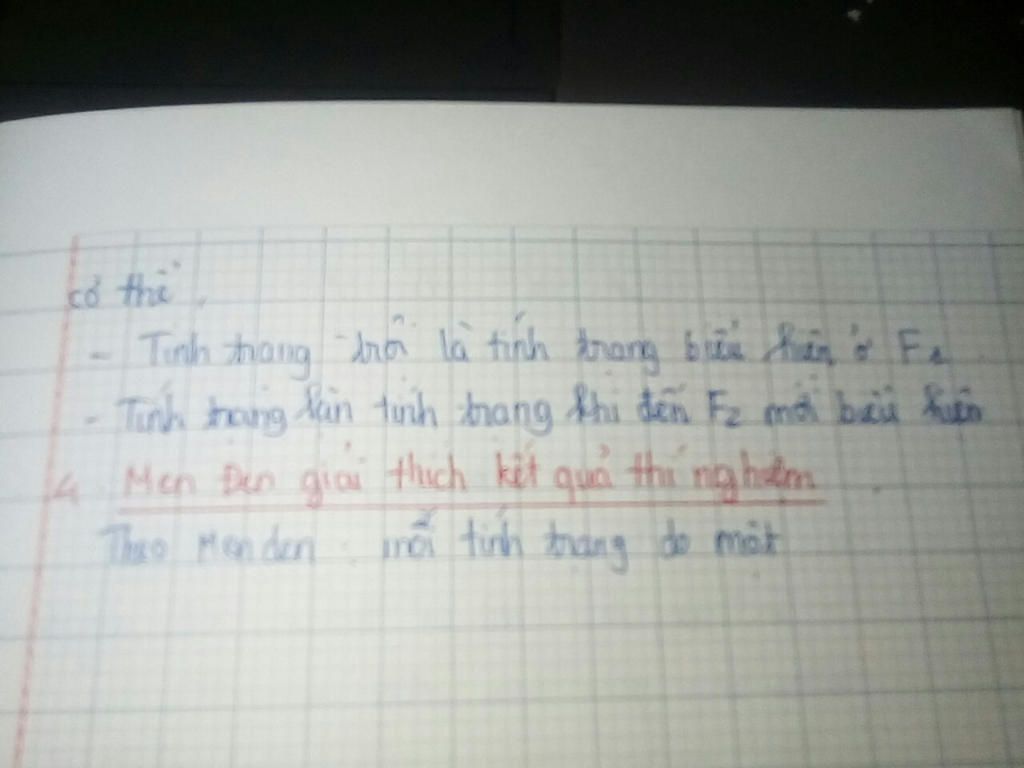 cơ thể.
- Tính trạng trội là tính trạng biểu hiện ở F1
- Tính trạng lặn tính trạng khi đến F2 mới biểu hiện
4. Men Đen giải thích kết quả thí nghiệm
Theo Menđen: mỗi tính trạng do một